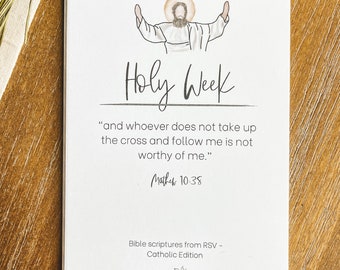 Holy Week
"and whoever does not take up
the cross and follow me is not
worthy of me."
Mathew 10:38
Bible scriptures from RSV -
Catholic Edition